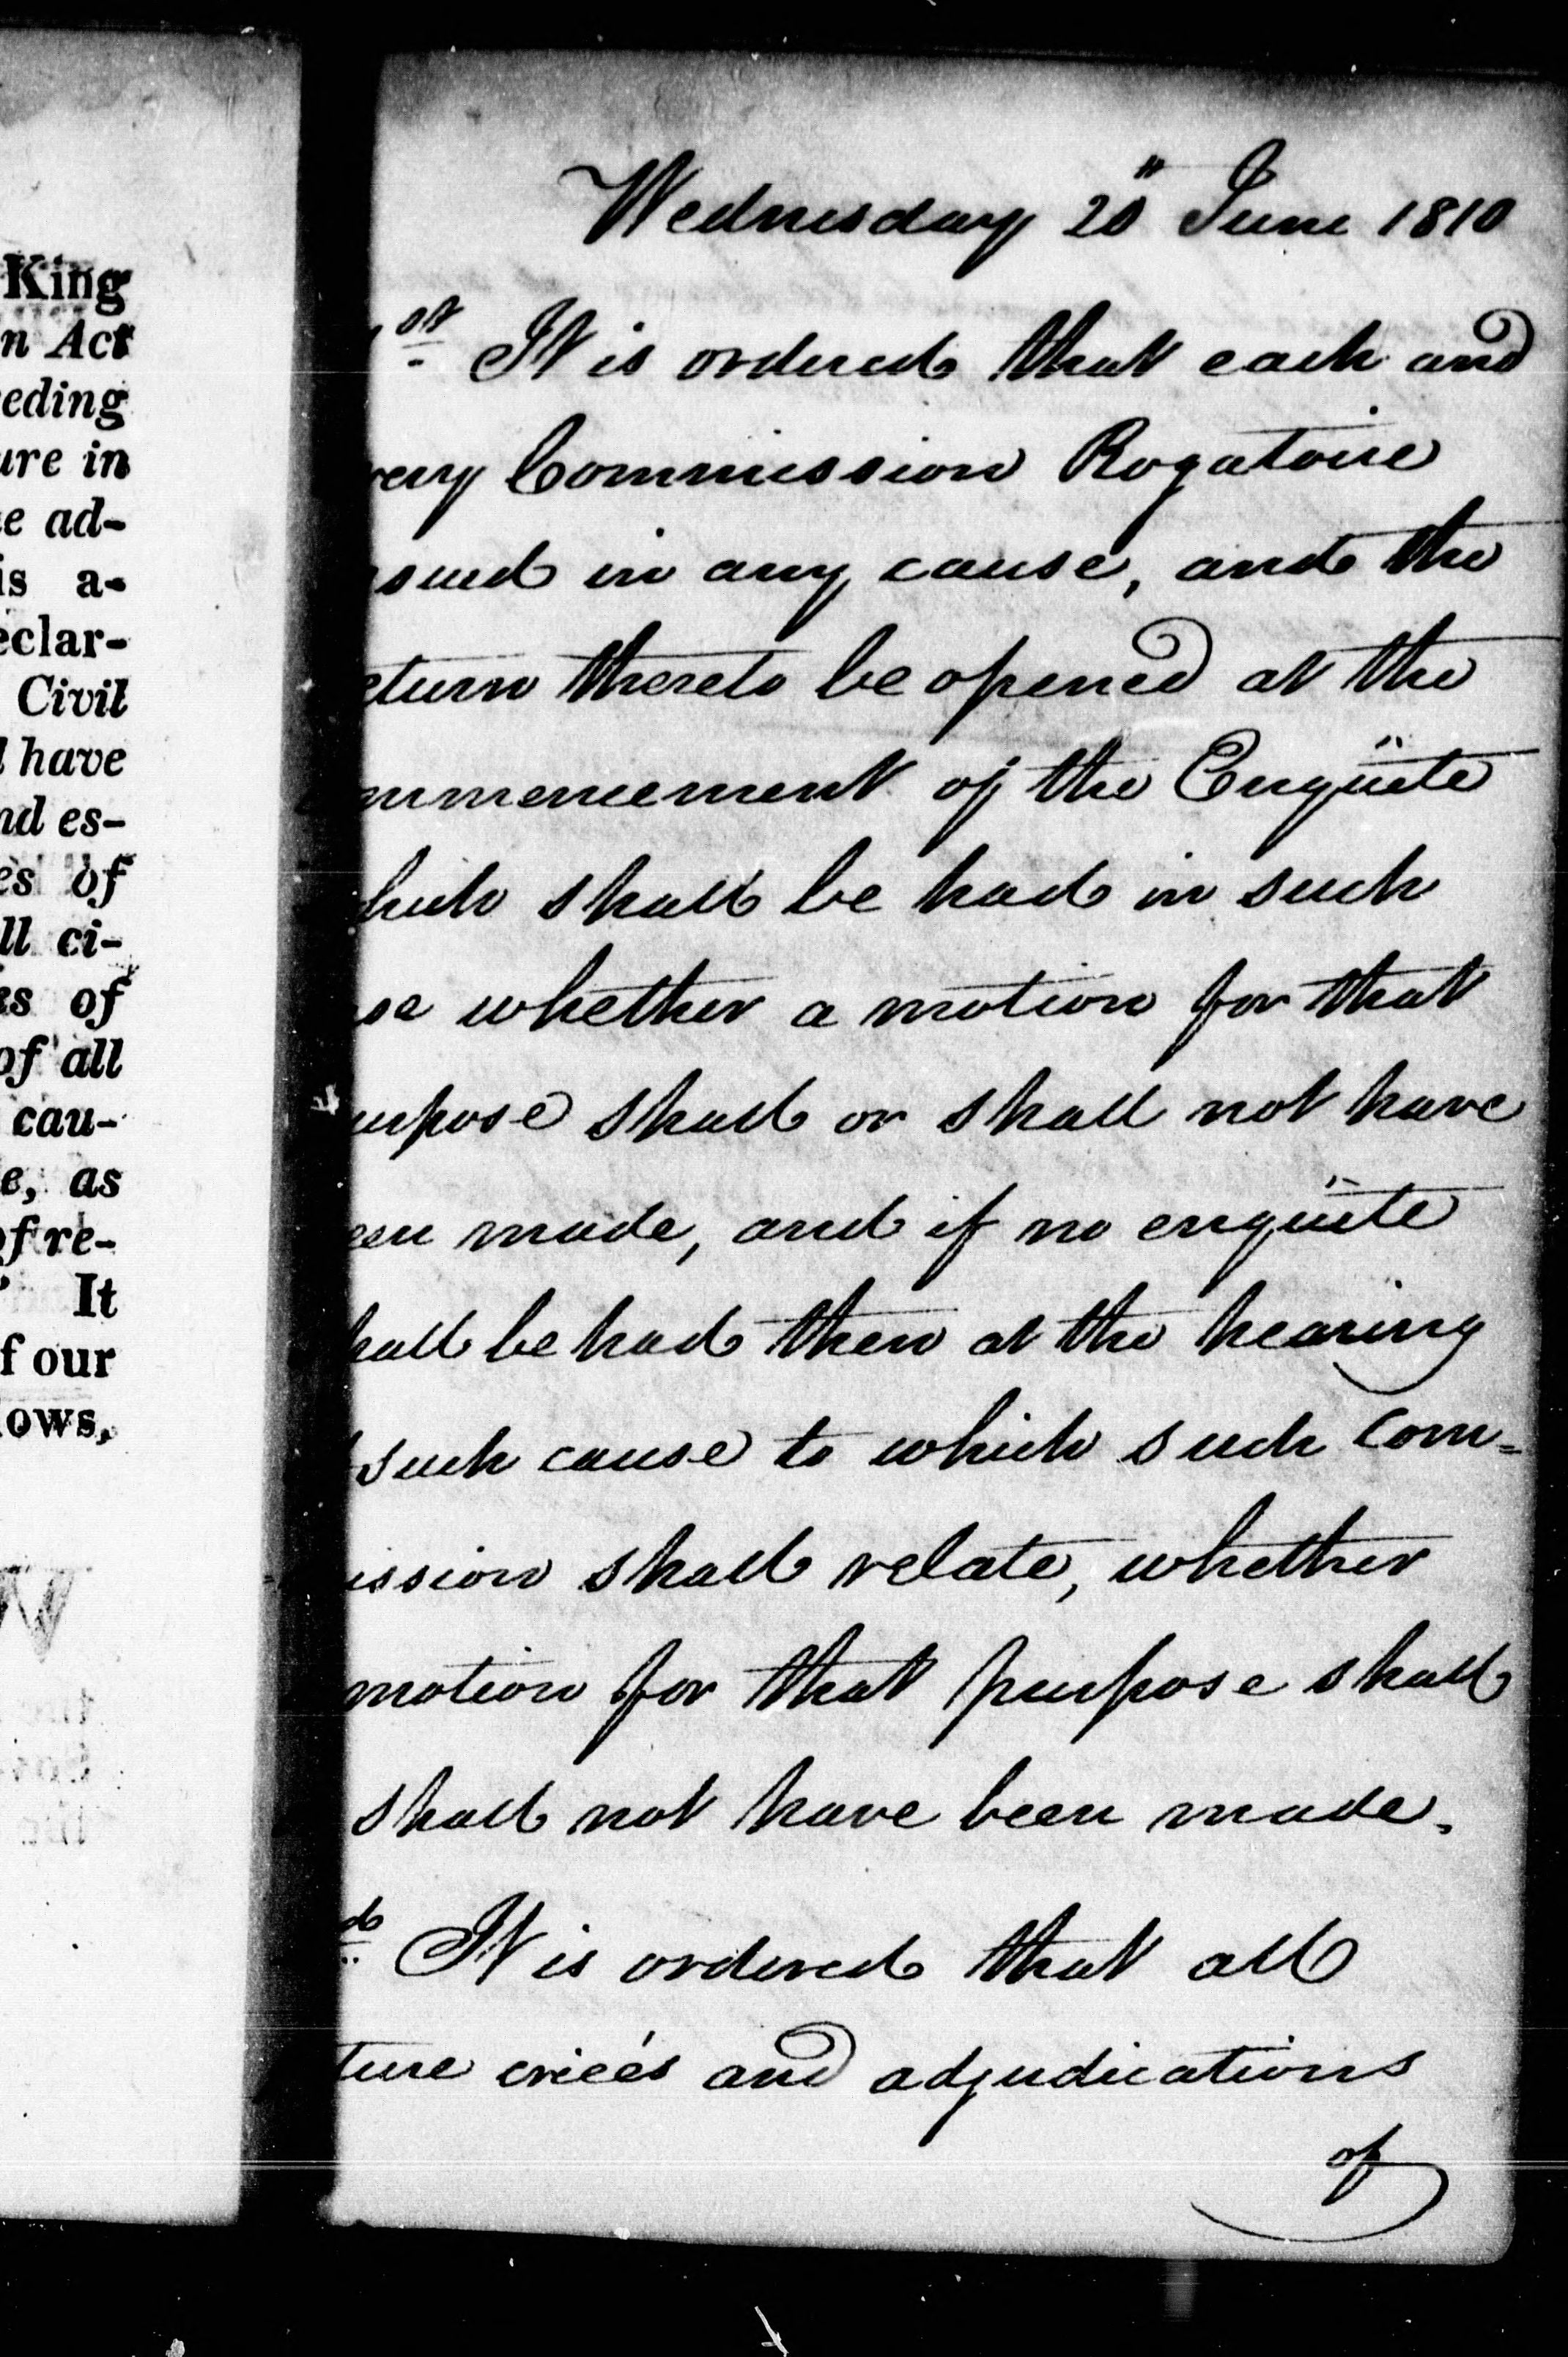 King
n Act
eding
ure in
e ad-
is a-
eclar-
Civil
have
nd es-
es of
ll ci-
es of
of all
cau-
e, as
of re-
It
f our
lows,
Wednesday 20" June 1810
st It is ordered that each and
very Commission Rogatoire
ssued in any cause, and the
eturn thereto be opened at the
ommencement of the Enqüete
hich shall be had in such
se whether a motion for that
urpose shall or shall not have
een made, and if no enqüete
hall be had then at the hearing
such cause to which such com=
ission shall relate, whether
motion for that purpose shall
shall not have been made.
d It is ordered that all
ture crieés and adjudications
of